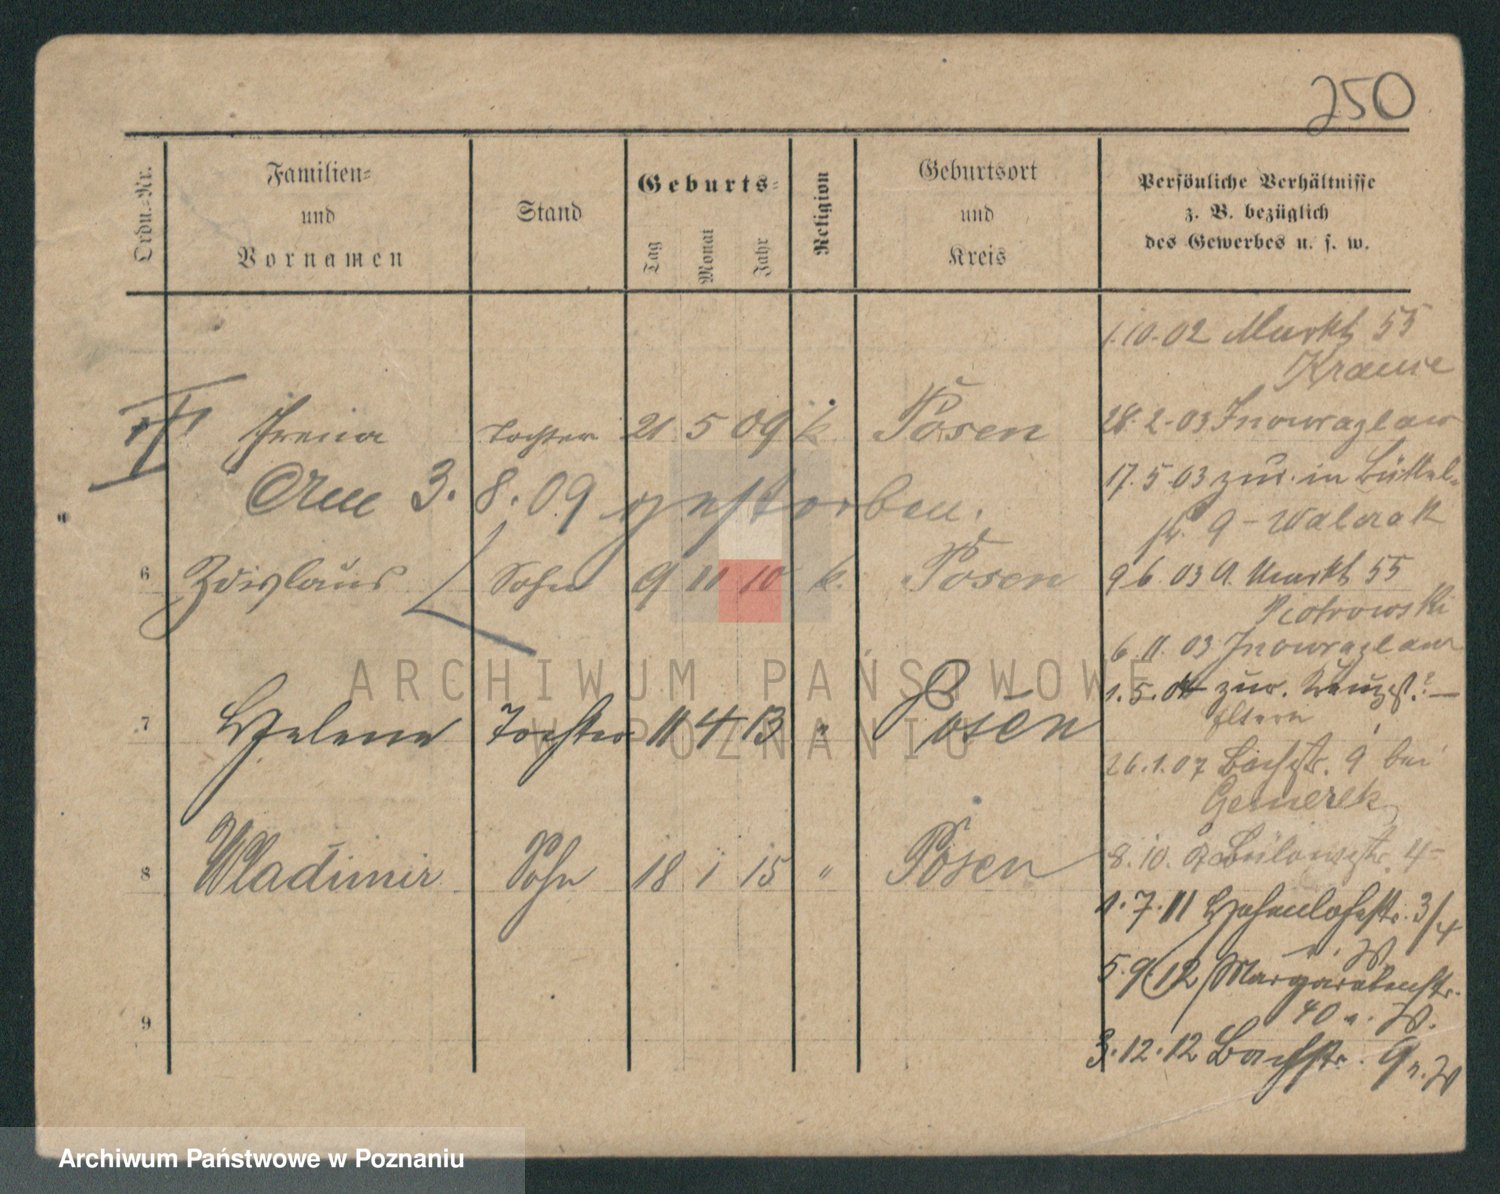 250
Ordn.-Nr.
Familien-
und
Vornamen
Stand
Geburts-
Tag
Monat
Jahr
Religion
Geburtsort
und
Kreis
Persönliche Verhältnisse
z. B. bezüglich
des Gewerbes u. s. w.
Irena Tochter 21 5 09 k. Posen
Am 3. 8. 09 gestorben.
6 Zdislaus Sohn 9 11 10 k. Posen
7 Helene Tochter 11 4 13 " Posen
8 Wladimir Sohn 18 1 15 " Posen
9
1.10.02 Markt 55
Krause
28.2.03 Inowrazlaw
17.5.03 zur. in Büttel-
str. 9 - Walczak
9 6. 03 A. Markt 55
Piotrowski
6. 11. 03 Inowrazlaw
1.5.04 zur.
Eltern
26.1.07 Bachstr. 9 bei
8.10.07 Bülowstr. 4
1.7.11 Hohenlohestr. 3/4
n. W.
5.9.12 Margarethenstr.
40 n. W.
3.12.12 Bachstr. 9 n. W
ARCHIWUM PAŃSTWOWE
W POZNANIU
Archiwum Państwowe w Poznaniu